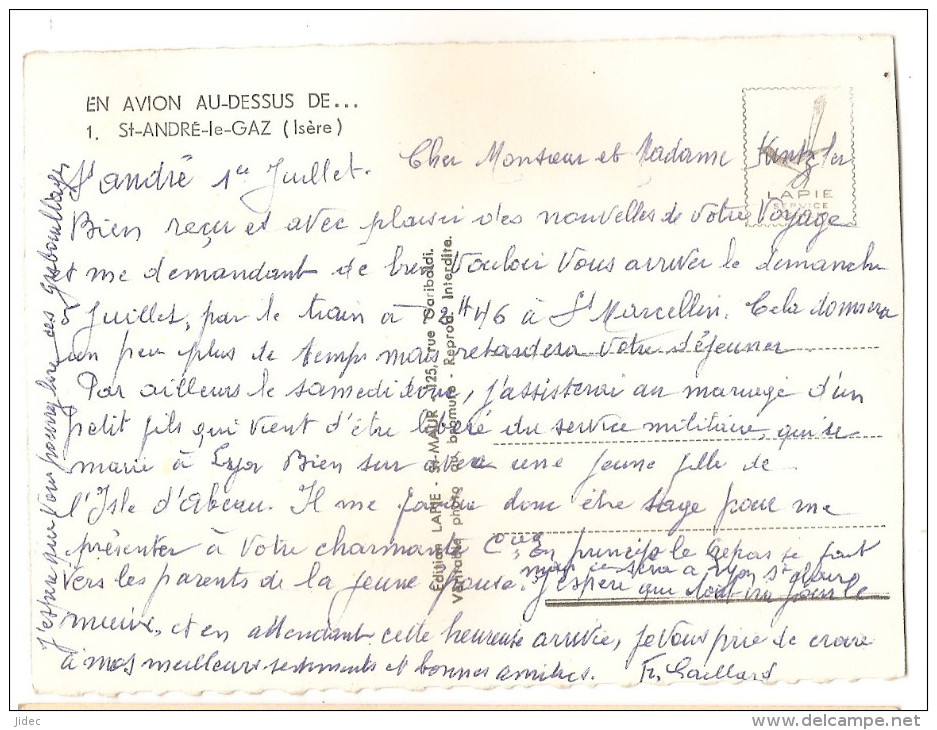 EN AVION AU-DESSUS DE...
1. St-ANDRÉ-le-GAZ (Isère)
LAPIE
SERVICE
St andré 1er Juillet. Cher Monsieur et Madame
Bien reçu et avec plaisir des nouvelles de votre Voyage
et me demandant de bien vouloir vous arriver le dimanche
Juillet, par le train à 12H46 à St Marcellin. Cela donnera
un peu plus de temps mais retardera votre déjeuner
Par ailleurs le samedi donc, j'assisterai au mariage d'un
petit fils qui vient d'être libéré du service militaire, qui se
marie à Lyon Bien sur avec une jeune fille de
l'Isle d'Abeau. Il me faudra donc être sage pour me
présenter à votre charmante
En principe le repas se fait
vers les parents de la jeune
mais ce sera à
J'espère que tout ira pour le
mieux, et en attendant cette heureuse arrivée, je vous prie de croire
à mes meilleurs sentiments et bonnes amitiés. Fr. Gaillard
J'espère que vous pourrez lire ces gribouillages
Edition LAPIE - St-MAUR - 125, rue Garibaldi.
Véritable photo au bromure - Reprod. Interdite.
Jidec
www.delcampe.net